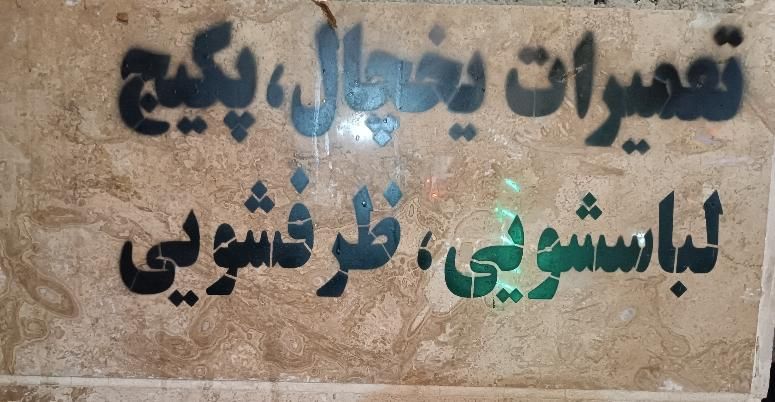 تعمیرات یخچال، پکیج
لباسشویی، ظرفشویی